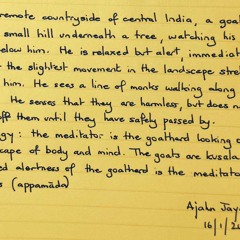 remote countryside of central India, a goa
small hill underneath a tree, watching his
below him. He is relaxed but alert, immediat
the slightest movement in the landscape stre
him. He sees a line of monks walking along
He senses that they are harmless, but does n
off them until they have safely passed by.
gy: the meditator is the goatherd looking o
scape of body and mind. The goats are kusala
ed alertness of the goatherd is the meditato
s (appamāda)
Ajahn Jay
16/1/2